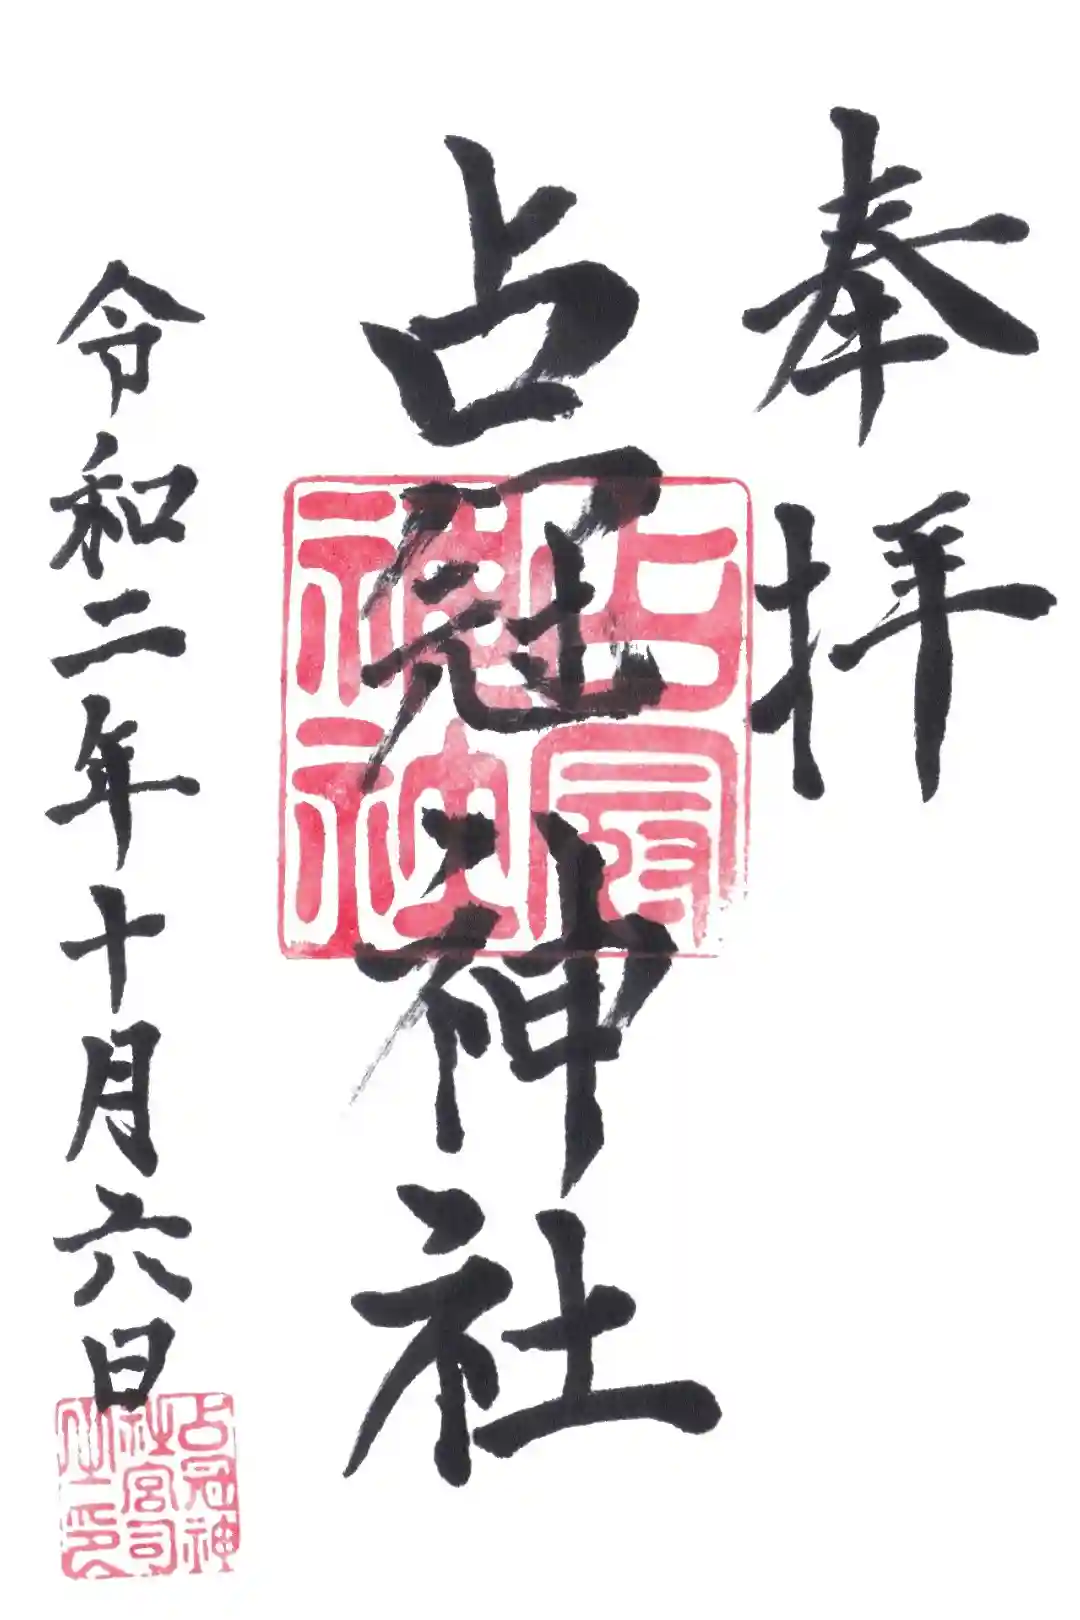 奉拝
占冠神社
令和二年十月六日
占冠神
社宮司
之印